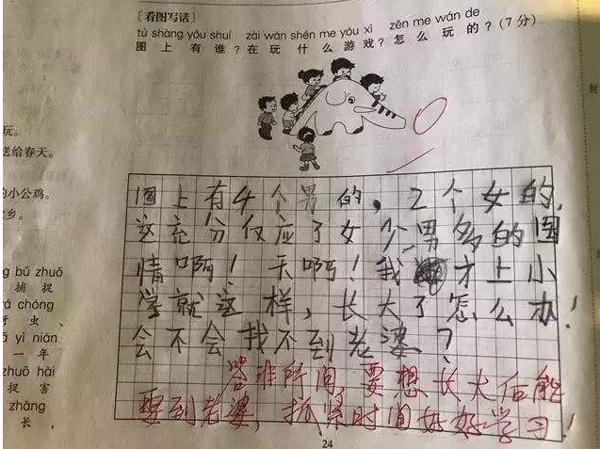 [看图写话]
tú shàng yǒu shuí zài wán shén me yóu xì zěn me wán de
图上有谁？在玩什么游戏？怎么玩的？(7分)
封
玩。
送给春天。
的小公鸡。
乡。
图上有4个男的，2个女的，
这充分仅应了女少男多的国
情啊！天啊！我才上小
学就这样，长大了怎么办！
会不会找不到老婆？
答非所问，要想长大后能
娶到老婆，抓紧时间好好学习！
ng bǔ zhuō
捕捉
rá chóng
牙虫、
à yì nián
一年
zhuō hài
捉害
zhǎng
长，
24